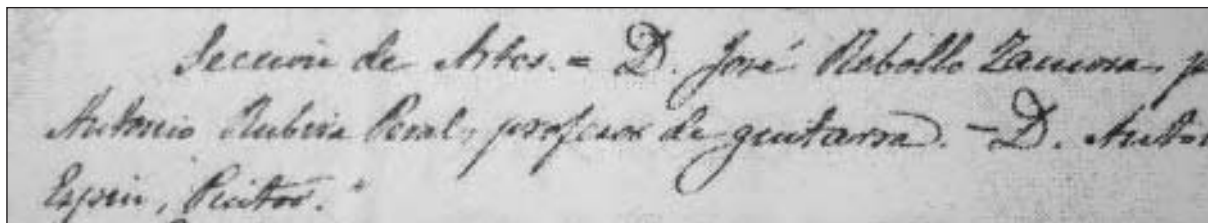 Sección de Artes. = D. José Rebollo Zamora, p
Antonio Rubira Peral, profesor de guitarra. - D. Anto
Espin, Pintor."